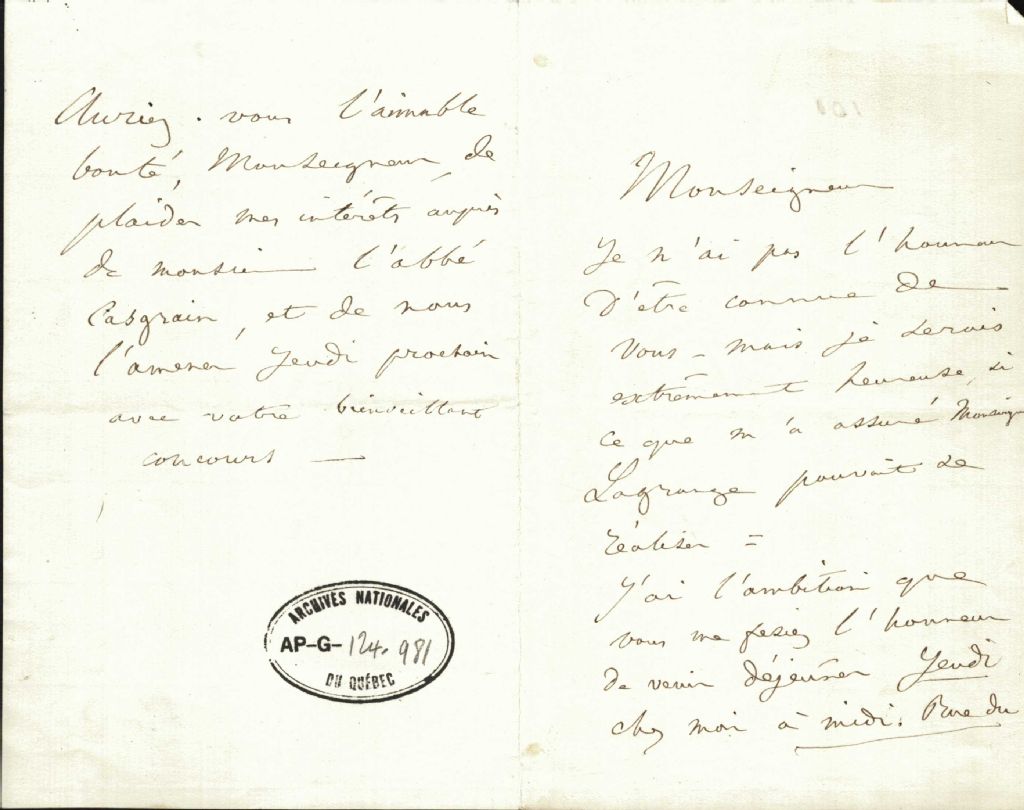 Monseigneur
Je n'ai pas l'honneur
D'être connue de
Vous – mais je serais
extrêmement heureuse, si
ce que m'a assuré Monseigneur
Lagrange pouvait se
réaliser =
J'ai l'ambition que
vous me fesiez l'honneur
de venir déjeûner Jeudi
chez moi à midi. Rue du
Auriez-vous l'aimable
bonté, Monseigneur, de
plaider mes intérêts auprès
de monsieur l'abbé
Casgrain, et de nous
l'amener Jeudi prochain
avec votre bienveillant
concours —
ARCHIVES NATIONALES
AP-G-124.981
DU QUÉBEC